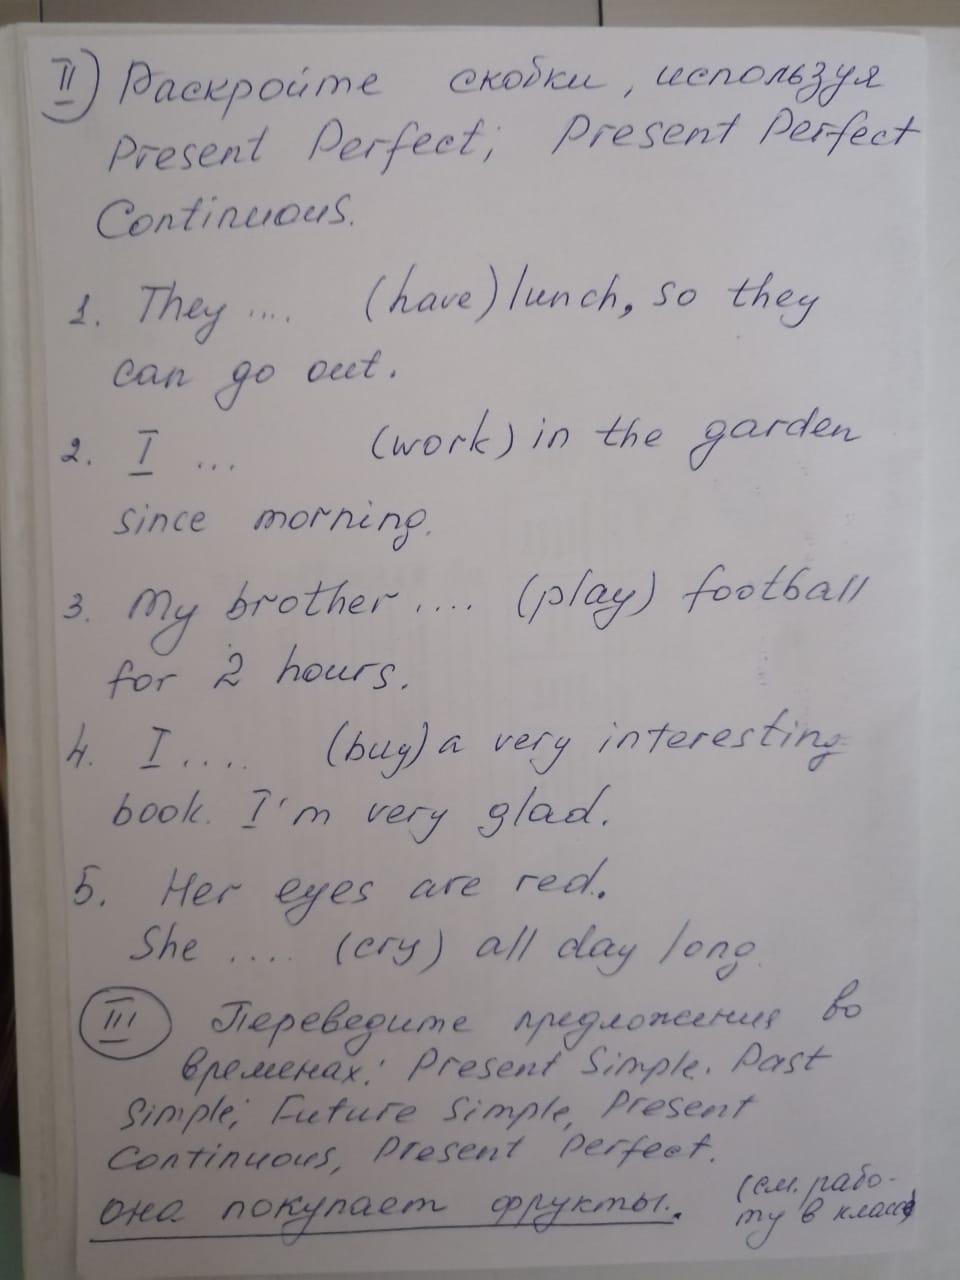 II) Раскройте скобки, используя
Present Perfect; Present Perfect
Continuous.
1. They .... (have) lunch, so they
can go out.
2. I ... (work) in the garden
since morning.
3. My brother .... (play) football
for 2 hours.
4. I .... (buy) a very interesting
book. I'm very glad.
5. Her eyes are red.
She .... (cry) all day long.
III Переведите предложения во
временах: Present Simple. Past
Simple; Future Simple, Present
Continuous, Present Perfect.
она покупает фрукты. (см. рабо-
ту в классе)